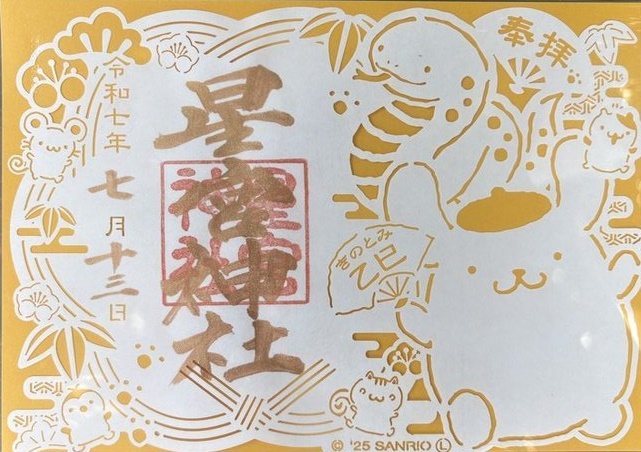 奉拝
星宮神社
令和七年
七月十三日
きのとみ
乙巳
© '25 SANRIO Ⓛ